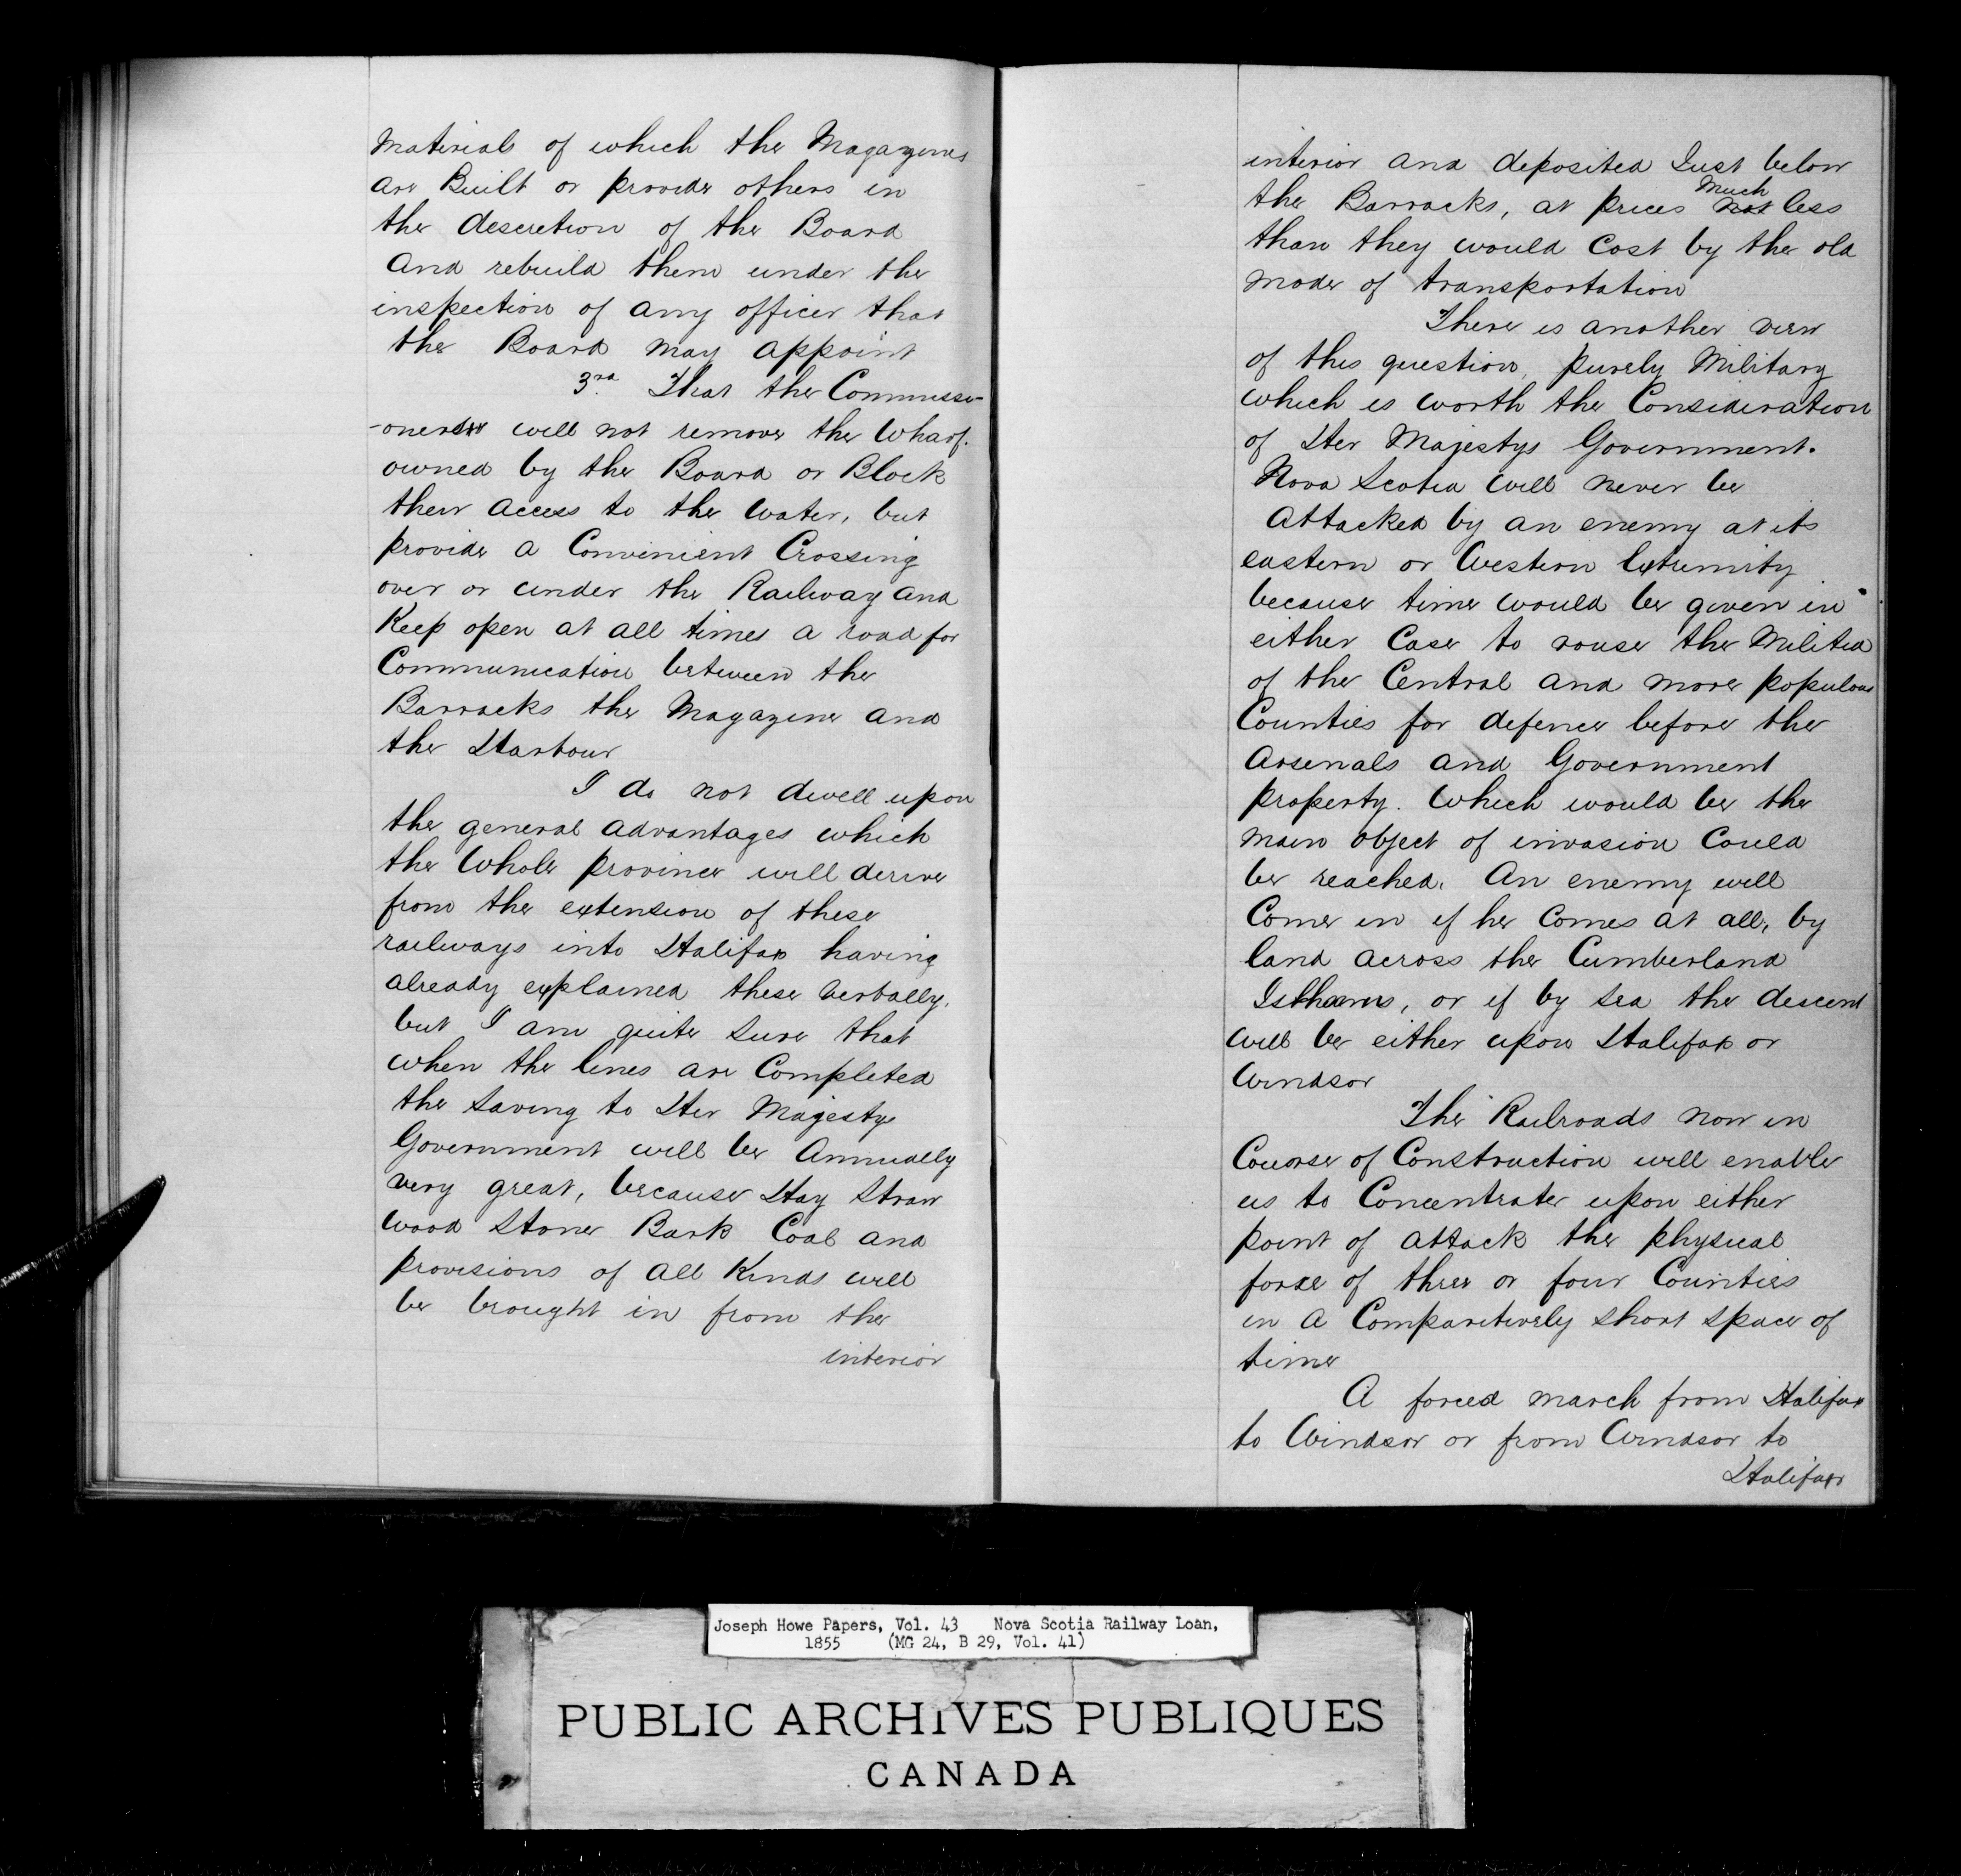 Materials of which the Magazenes
are Built or provide others in
the descretion of the Board
and rebuild them under the
inspection of any officer that
the Board may appoint
3rd. That the Commissi-
-oners will not remove the Wharf.
owned by the Board or Block
their access to the Water, but
provide a Convenient Crossing
over or under the Railway and
Keep open at all times a road for
Communication between the
Barracks the Magazine and
the Harbour
I do not dwell upon
the general advantages which
the Whole province will derive
from the extension of these
railways into Halifax having
already explained these verbally,
but I am quite sure that
when the lines are Completed
the saving to Her Majestys
Government will be Annually
very great, because Hay Straw
Wood Stone Bark Coal and
provisions of all Kinds will
be brought in from the
interior
interior and deposited Just below
the Barracks, at prices Much not less
than they would Cost by the old
mode of transportation
There is another view
of this question, purely Military
which is worth the Consideration
of Her Majestys Government.
Nova Scotia will never be
attacked by an enemy at its
eastern or Western Extremity
because time would be given in
either Case to rouse the Militia
of the Central and more populous
Counties for defence before the
Arsenals and Government
property. Which would be the
main object of invasion Could
be reached. An enemy will
Come in if he Comes at all, by
land across the Cumberland
Isthmus, or if by Sea the descent
will be either upon Halifax or
Windsor
The Railroads now in
Course of Construction will enable
us to Concentrate upon either
point of attack the physical
force of three or four Counties
in a Comparitively short space of
time
A forced march from Halifax
to Windsor or from Windsor to
Halifax
Joseph Howe Papers, Vol. 43 Nova Scotia Railway Loan,
1855 (MG 24, B 29, Vol. 41)
PUBLIC ARCHIVES PUBLIQUES
CANADA